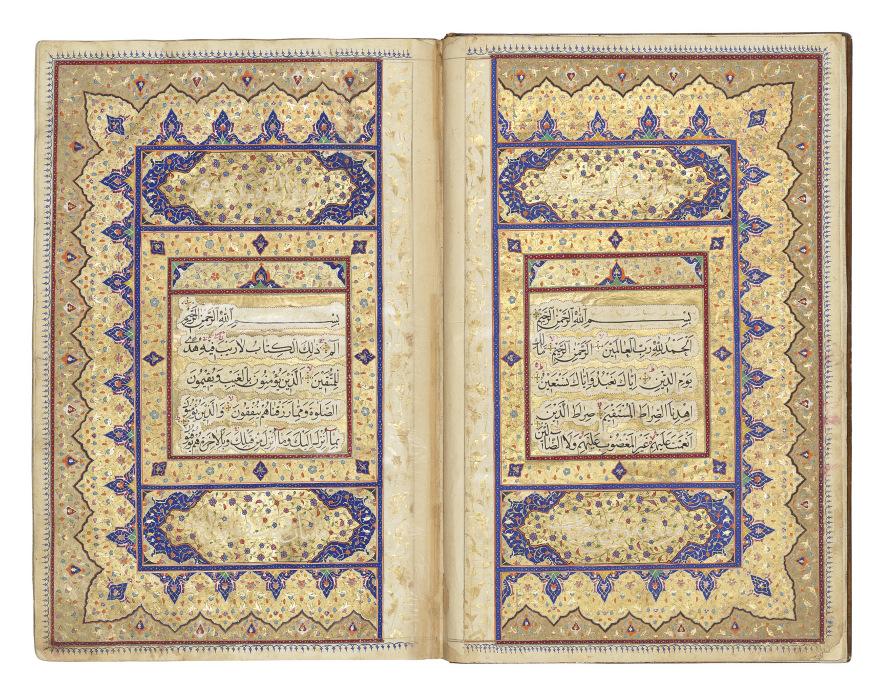 بسم الله الرحمن الرحيم
الحمد لله رب العالمين الرحمن الرحيم مالك
يوم الدين اياك نعبد واياك نستعين
اهدنا الصراط المستقيم صراط الذين
انعمت عليهم غير المغضوب عليهم ولا الضالين
بسم الله الرحمن الرحيم
الم ذلك الكتاب لا ريب فيه هدى
للمتقين الذين يؤمنون بالغيب ويقيمون
الصلوة ومما رزقناهم ينفقون والذين يؤمنون
بما انزل اليك وما انزل من قبلك وبالاخرة هم يوقنون